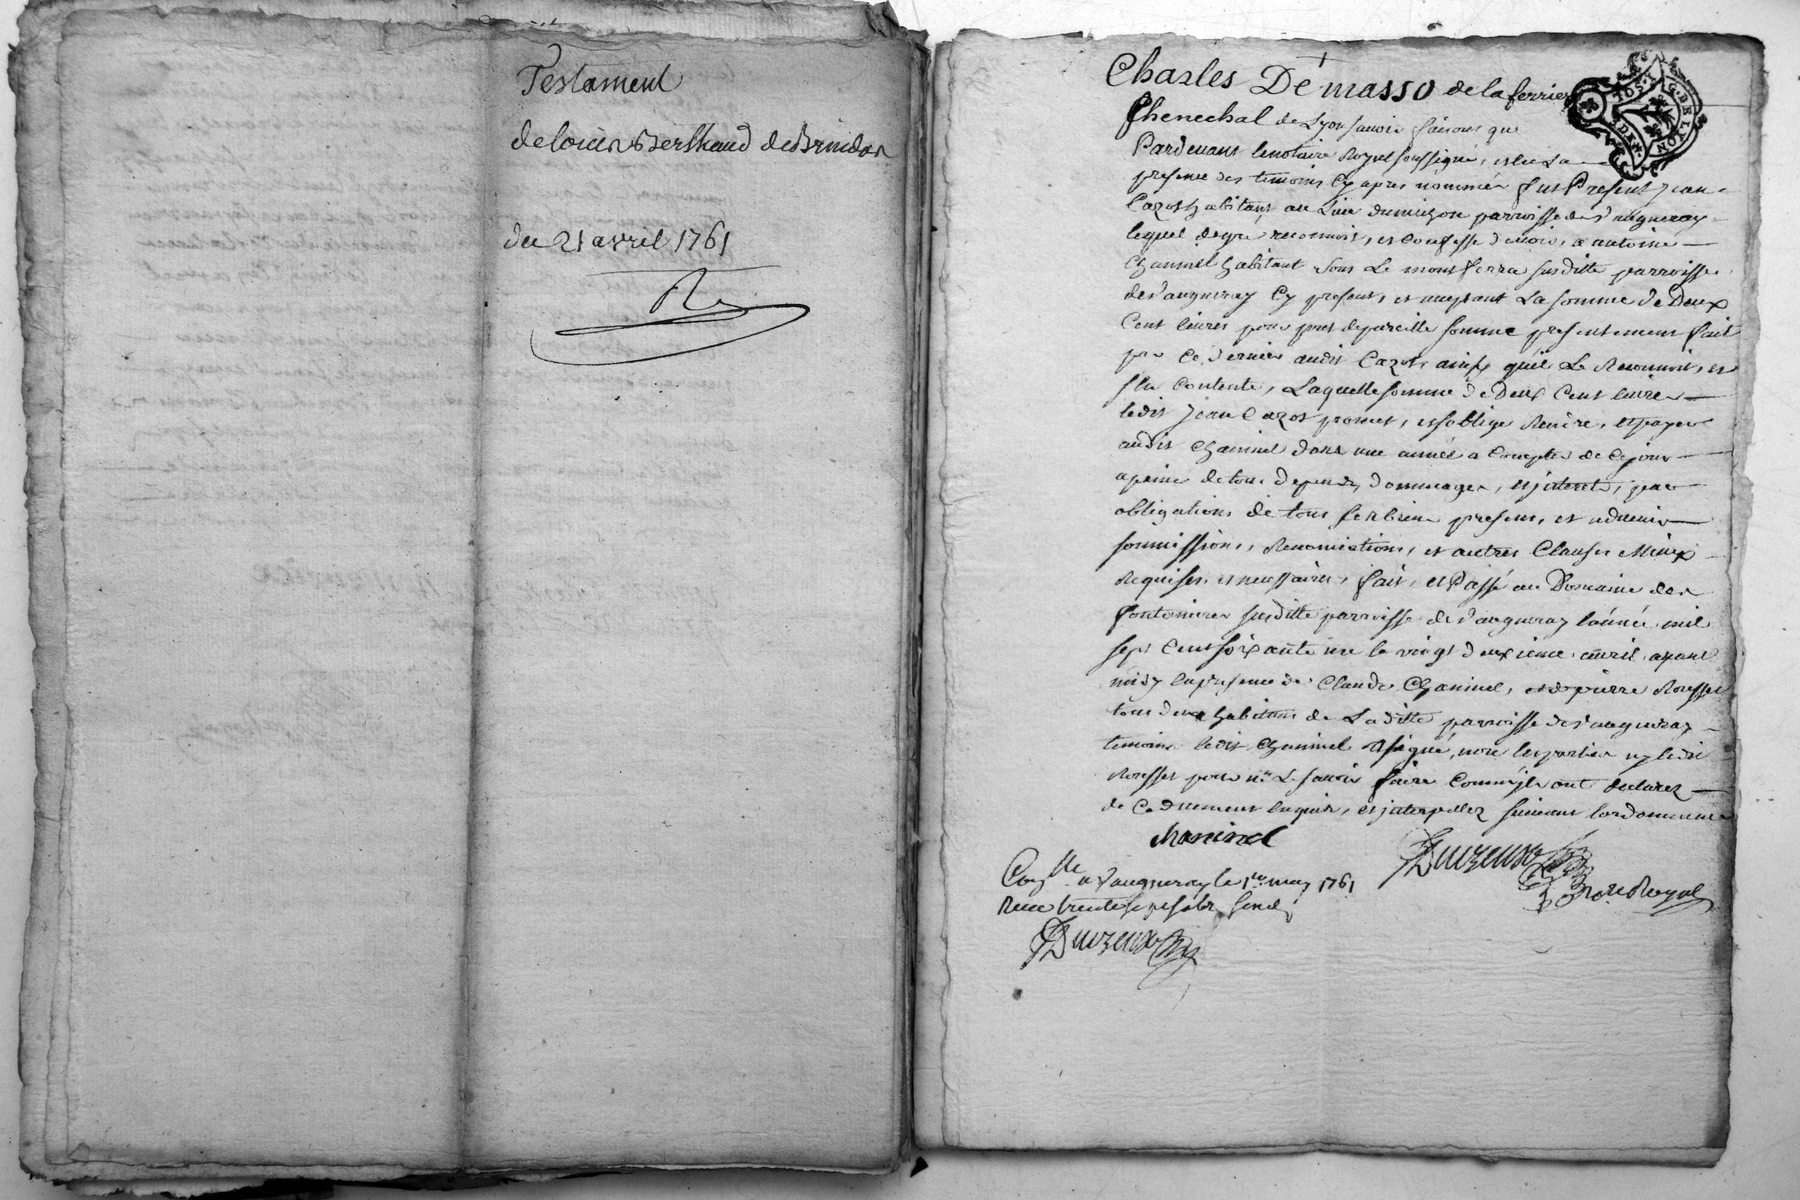 Testament
de louis Berthaud de Brindas
du 21 avril 1761
Charles De masso de la ferriere
Shenechal de Lyon savoir faisons que
Pardevant le notaire Royal soussigné, et en La
presence des temoins cy apres nommés fut Present jean
Cazot habitant au Lieu du parroisse de vaugneray
lequel de gré reconnoit, et confesse devoir, a antoine
Chaninel habitant sous Le montferra susditte parroisse
de vaugneray cy present, et acceptant La somme de Deux
Cent livres pour pret de pareille somme presentement fait
par ce dernier audit Cazot, ainsy qu'il Le Reconnoit, et
s'en contente, Laquelle somme de Deux Cent livres
ledit jean Cazot promet, et s'oblige Rendre, et payer
audit Chaninel dans une année a compter de ce jour
a peine de tous depens, dommages, et jnterets, par
obligations de tous ses biens presens, et advenir
soumissions, Renonciations, et autres Clauses Mieux
Requises, et necessaires, fait, et Passé au Domaine des
fontanieres susditte parroisse de vaugneray l'année mil
sept Cent soixante une le vingt deuxieme avril avant
midy en presence de Claude Chaninel, et de pierre Rousset
tous deux habitans de La ditte parroisse de vaugneray
temoins ledit Chaninel a signé, non les parties ny ledit
Rousset pour ne Le savoir faire comme jls ont declarez
de ce duement enquis, et jnterpellez suivant l'ordonnance
chaninel
Duizeux
No.re Royal
Con.lle a Vaugneray le 1er may 1761
Recu trente
Duizeux
TDS. G. DE LYON